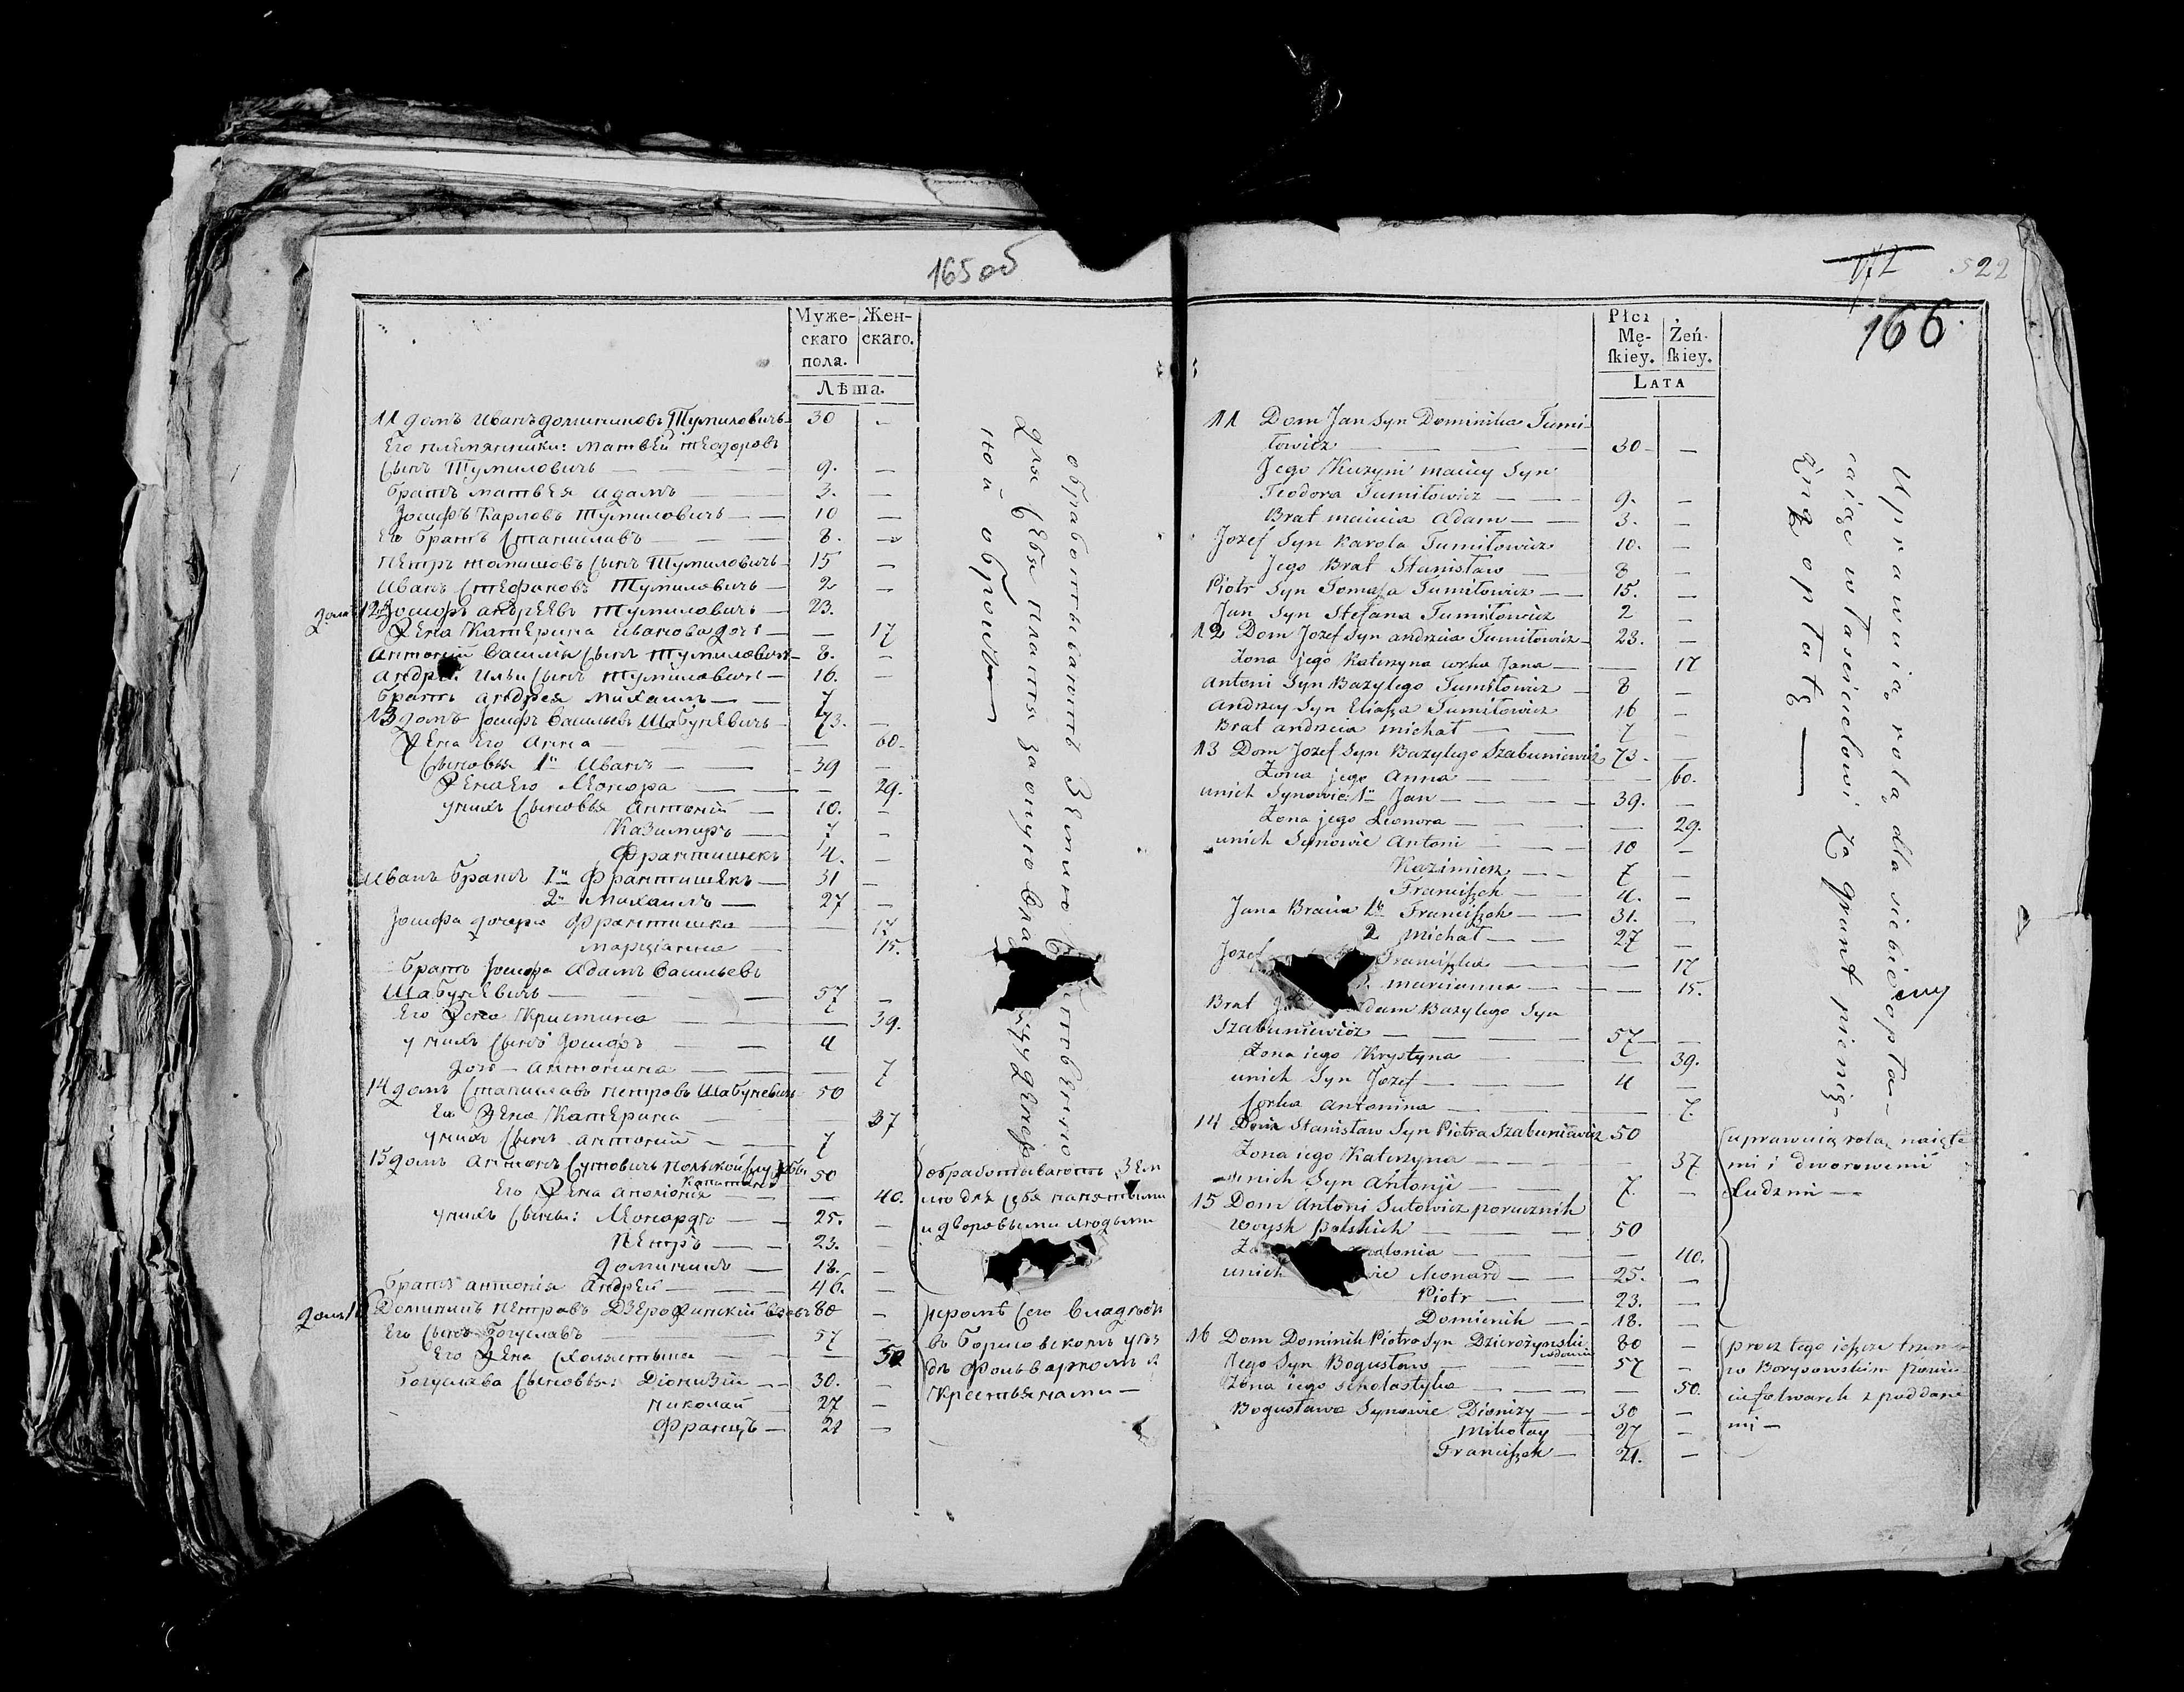 165 об
Муже-
скаго
пола.
Жен-
скаго.
Лѣта.
11 домъ Иванъ доминиковъ Тумиловичь — 30 —
Его племянники: матвей теодоровъ
сынъ Тумиловичь — 9. —
братъ матвея адамъ — 3. —
Іосифъ Карловъ Тумиловичь — 10 —
Его братъ Станиславъ — 8. —
петръ томашовъ сынъ Тумиловичь — 15 —
Иванъ Стефановъ Тумиловичь — 2 —
домъ 12 Іосифъ андреевъ Тумиловичь — 23.
Жена Катерина Иванова дочь — — 17
Антоній Василія сынъ Тумиловичь — 8. —
андрей Ильи сынъ Тумиловичь — 16. —
братъ андрея Михаилъ — 7
13 домъ Іосифъ Васильевъ Шабуневичь — 73. —
Жена Его Анна — — 60.
сыновья 1й Иванъ — 39 —
Жена Его Леонора — — 29.
у нихъ сыновья Антоній — 10. —
Казимиръ — 7 —
Франтишекъ 4. —
Ивана братъ 1й Франтишекъ — 31 —
2й Михаилъ — 27 —
Іосифа дочери Франтишка — — 17
Марціанна — 15.
братъ Іосифа Адамъ Васильевъ
Шабуневичь — 57 —
Его Жена Кристина — — 39.
у нихъ сынъ Іосифъ — 4
дочь Антонина — — 7
14 домъ Станиславъ петровъ Шабуневичь 50
Его Жена Катерина — 37
у нихъ сынъ антоній — 7
15 домъ Антонъ Сутовичь польской службы
50
Его Жена аполіонія — — 40.
у нихъ сыны: Леонардъ — 25. —
Петръ — 23. —
доминикъ — 18. —
братъ антонія Андрей — 46. —
домъ 16 Доминикъ петровъ Дзерожинскій вдовъ 80 —
Его сынъ Богуславъ — 57 —
Его Жена схоластыка — — 50
Богуслава сыновья: Діонизій — 30. —
николай — 27 —
Францъ — 21 —
обработываютъ землю
для себя платя за оную
ной оброкъ —
обработываютъ зем
лю для себя нанятыми
и дворовыми людьми
кромѣ сего владѣе
въ Борисовскомъ уѣз
дѣ фольваркомъ
крестьянами —
172 522
166.
Płci
Mę-
skiey.
Żeń-
skiey.
LATA
11 Dom Jan Syn Dominika Tumi-
łowicz — 30 —
Jego Kuzyni maciey Syn
Teodora Tumiłowicz — 9. —
Brat macieia adam — 3. —
Jozef Syn Karola Tumiłowicz 10. —
Jego Brat Stanisław — 8 —
Piotr Syn Tomasza Tumiłowicz — 15. —
Jan Syn Stefana Tumiłowicz 2 —
12 Dom Jozef Syn andrzeia Tumiłowicz — 23. —
Zona jego Katerzyna corka Jana — — 17
Antoni Syn Bazylego Tumiłowicz — 8 —
andrzey Syn Eliasza Tumiłowicz 16 —
Brat andrzeia michał — 7 —
13 Dom Jozef Syn Bazylego Szabuniewicz 73. —
Zona jego anna — — 60.
unich Synowie 1o Jan — 39. —
Zona jego Leonora — — 29.
unich Synowie Antoni — 10 —
Kazimierz — 7 —
Franciszek — 4. —
Jana Bracia 1o Franciszek — 31. —
2 michał — 27 —
Jozef Franciszka — — 17
marcianna — — 15.
Brat adam Bazylego Syn
Szabuniewicz — 57 —
Zona iego Krystyna — — 39.
unich Syn Jozef — 4 —
Corka Antonina — 7.
14 Dom Stanisław Syn Piotra Szabuniewicz 50
Zona iego Katerzyna — 37
unich Syn Antoni — 7. —
15 Dom Antoni Sutowicz porucznik
woysk polskich — 50
— 40.
unich Leonard — 25. —
Piotr — 23. —
Dominik — 18. —
16 Dom Dominik Piotra Syn Dzierożynski
80 —
Jego Syn Bogusław — 57 —
Zona iego scholastyka — — 50.
Bogusława Synowie Dionizy — 30 —
mikołay — 27 —
Franciszek — 21. —
Uprawuią rolą dla siebie opła-
caiąc własciciełowi za grunt pienię-
żną opłatę —
uprawuią rolą naięte
mi i dworowemi
ludzmi —
procz tego ieszcze trzyma
w Borysowskim powie
cie folwark z poddane
mi —